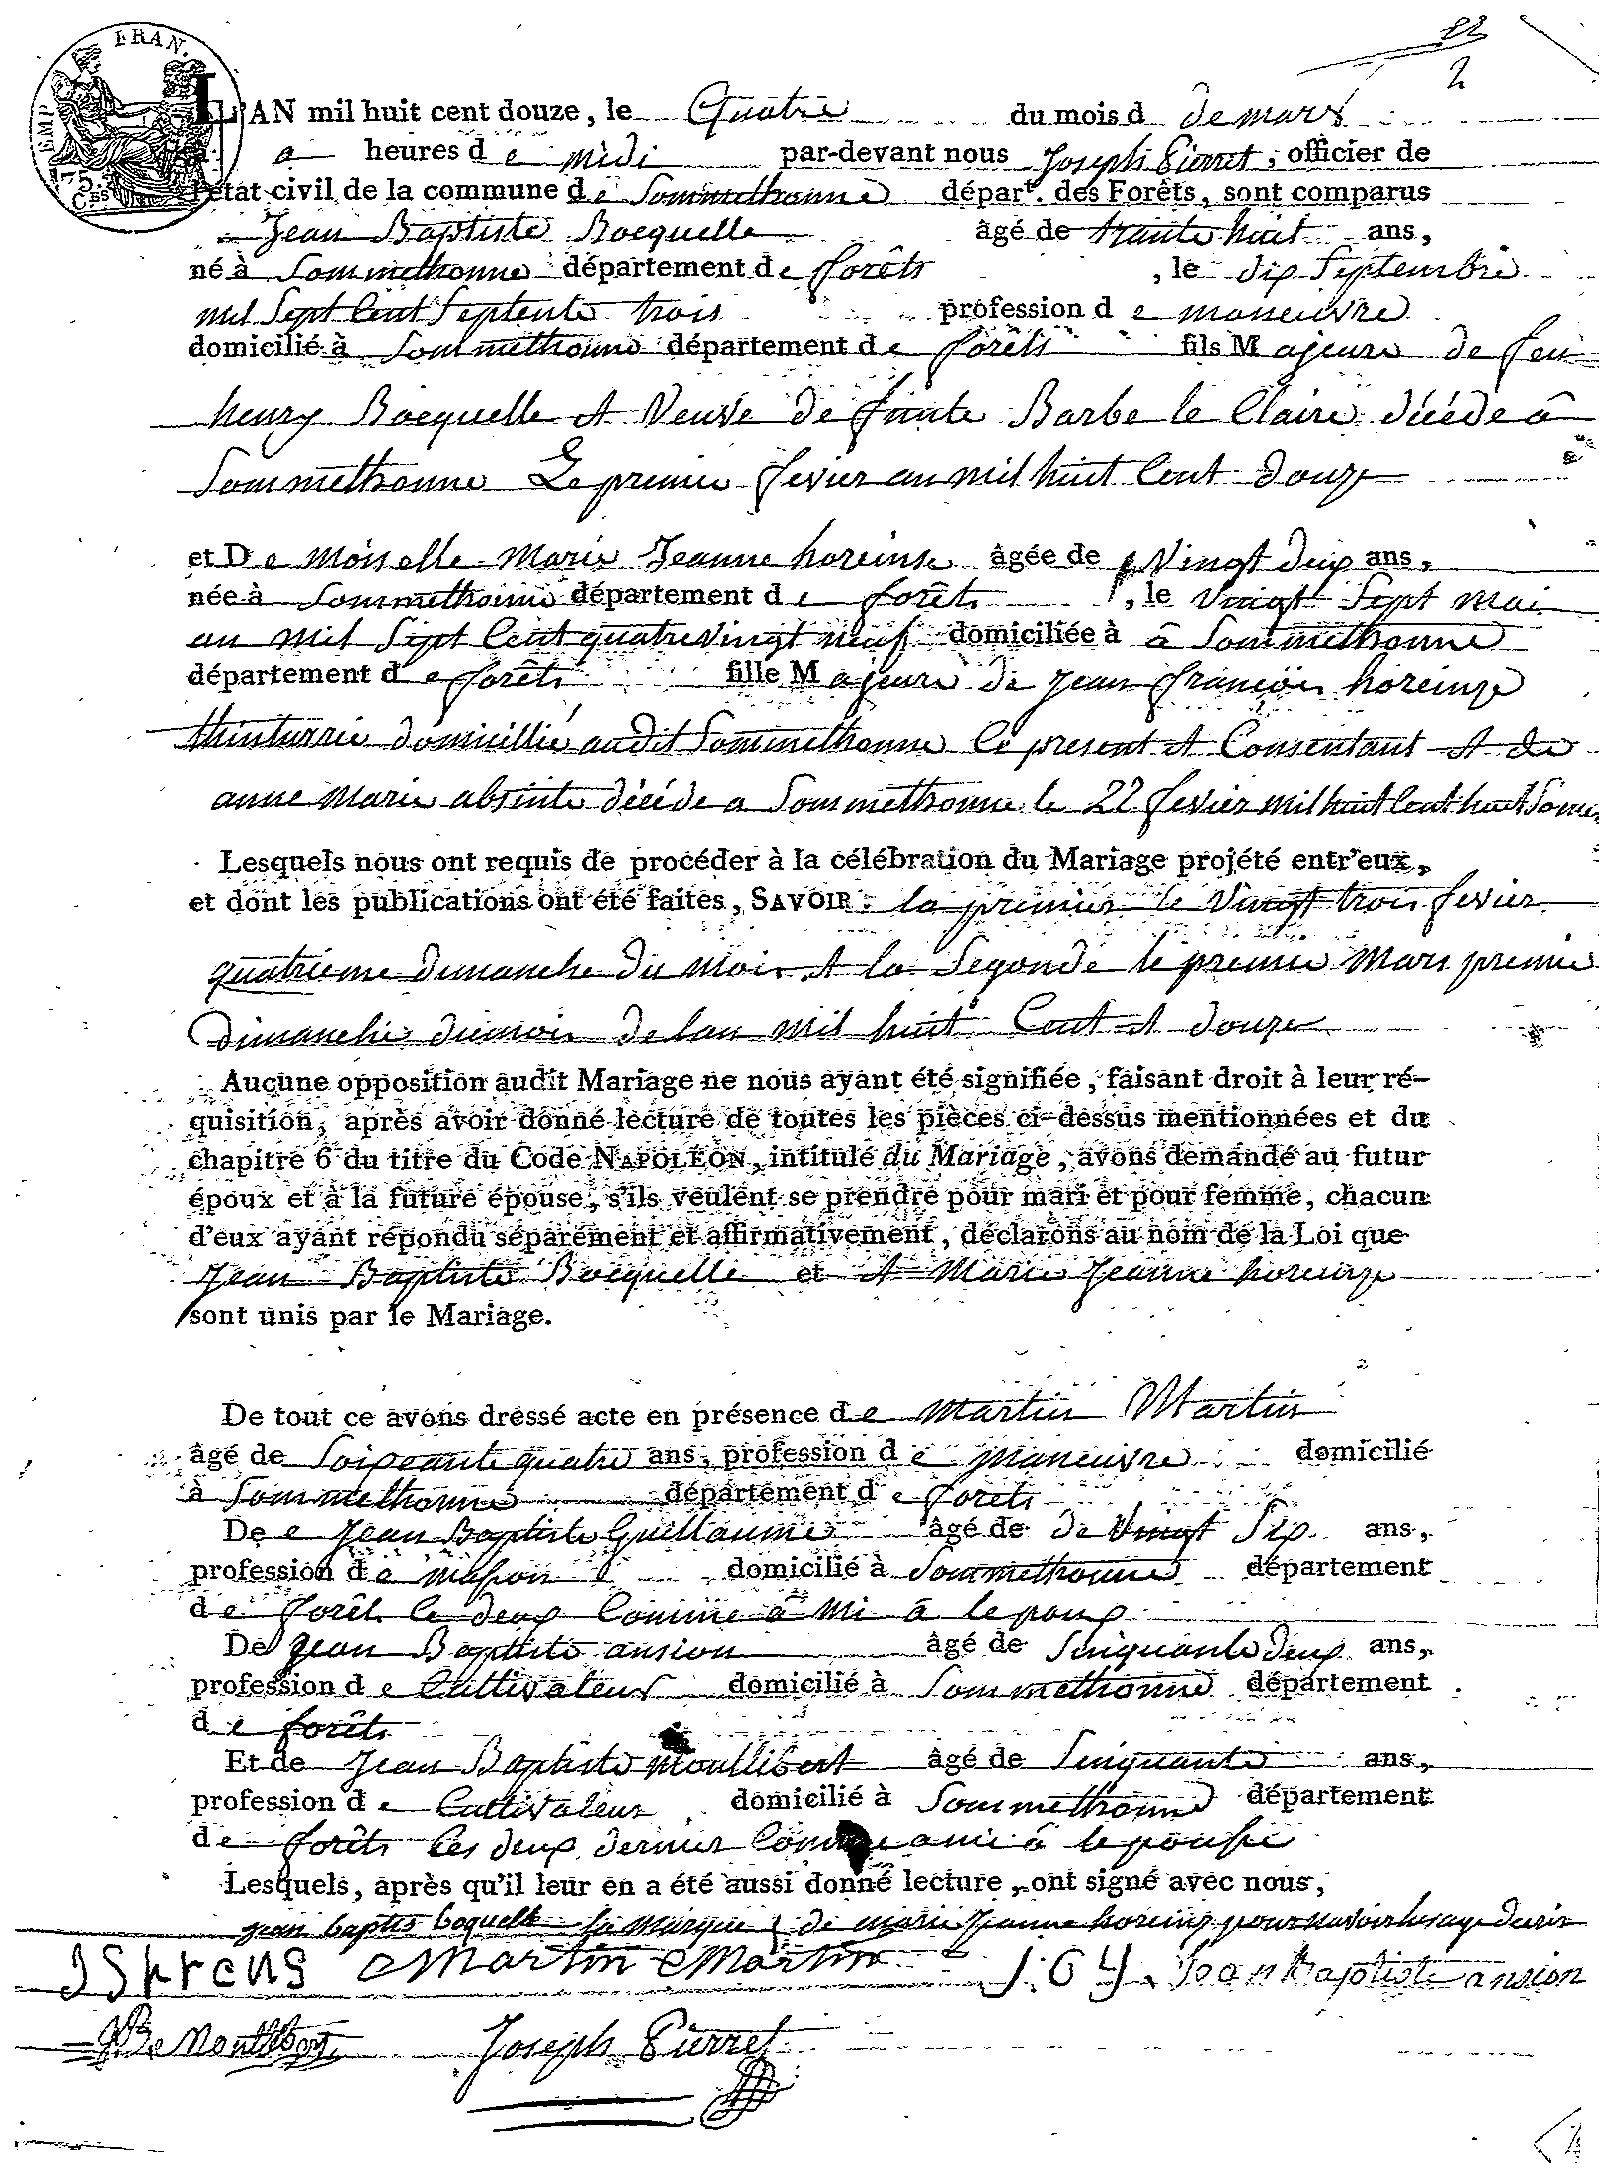 22
2
EMP. FRAN.
75
Ces
L'AN mil huit cent douze, le Quatre du mois d de mars
a heures de midi par-devant nous Joseph Pierret, officier de
l'état civil de la commune de Sommethonne départ. des Forêts, sont comparus
Jean Baptiste Bocquelle âgé de trante huit ans,
né à Sommethonne département de forêts, le dix Septembre
mil Sept Cent Septente trois profession de maneuvre
domicilié à Sommethonne département de forêts fils Majeure de feu
henry Bocquelle et Veuve de fainte Barbe le Claire décéde â
Sommethonne Le premier fevier an mil huit Cent douze
et De moiselle Marie Jeanne horeinse âgée de Vingt deux ans,
née à Sommethonne département de forêts, le vingt Sept mai
an mil Sept Cent quatrevingt neuf domiciliée à â Sommethonne
département de forêts fille Majeure de jean françois horeinze
domicillié audit Sommethonne Ce present et Consentant et de
anne Marie absinte décéde a Sommethonne le 22 fevier mil huit Cent huit
Lesquels nous ont requis de procéder à la célébration du Mariage projété entr'eux,
et dont les publications ont été faites, SAVOIR : la premier le Vingt trois fevier
quatrieme dimanche du mois et la Segonde le premier Mars premier
Dimanche dumois de lan mil huit Cent et douze
Aucune opposition audit Mariage ne nous ayant été signifiée, faisant droit à leur ré-
quisition, après avoir donné lecture de toutes les pièces ci-dessus mentionnées et du
chapitre 6 du titre du Code NAPOLÉON, intitulé du Mariage, avons demandé au futur
époux et à la future épouse, s'ils veulent se prendre pour mari et pour femme, chacun
d'eux ayant répondu séparément et affirmativement, déclarons au nom de la Loi que
Jean Baptiste Bocquelle et et Marie Jeanne horeinze
sont unis par le Mariage.
De tout ce avons dressé acte en présence de Martin Martin
âgé de Soixante quatre ans, profession de Maneuvre domicilié
à Sommethonne département de forêts
De e Jean Baptiste Guillaume âgé de de Vingt Six ans,
profession de masson domicilié à Sommethonne département
de forêt Ce deux Comme â mi â lepoux
De Jean Baptiste ansion âgé de Sinquante deux ans,
profession de Cultivateur domicilié à Sommethonne département
de forêts
Et de Jean Baptiste Moullibert âgé de Sinquante ans,
profession de Cultivateur domicilié à Sommethonne département
de forêts Ces deux dernier Comme ami â lepouse
Lesquels, après qu'il leur en a été aussi donné lecture, ont signé avec nous,
jean baptis boquelle la marque de marie Jeanne horeinz pour
Martin Martin J. G Y. Jean Baptiste ansion
Joseph Pierret